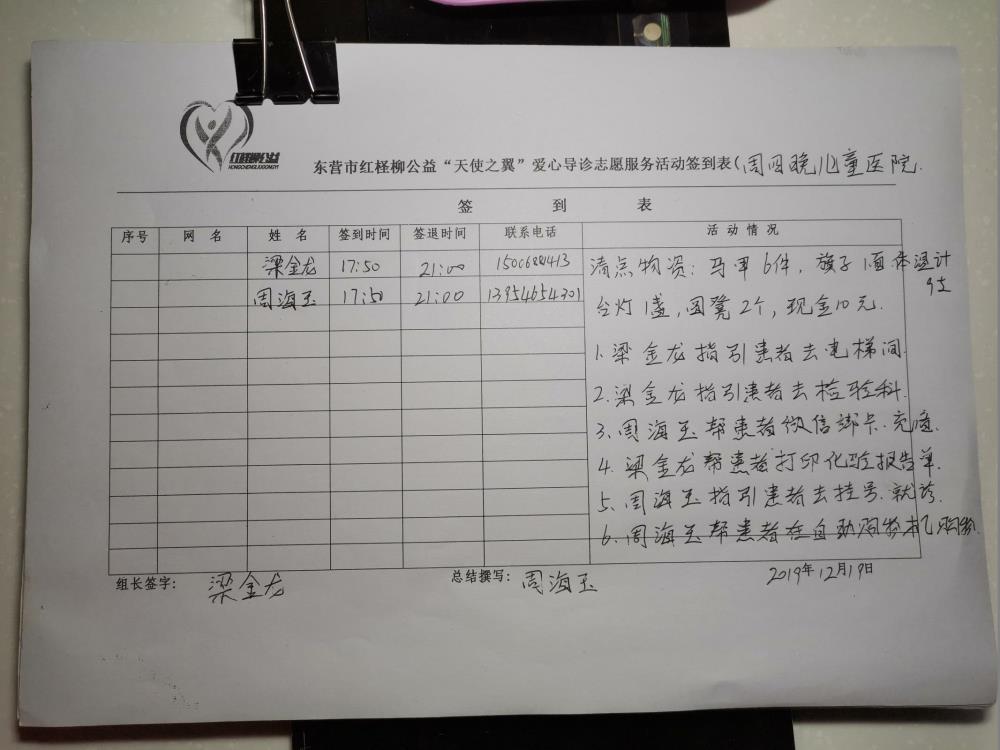 红柽柳公益
HONGCHENGLIUGONGYI
东营市红柽柳公益“天使之翼”爱心导诊志愿服务活动签到表(周四晚儿童医院.
签 到 表
序号 网 名 姓 名 签到时间 签退时间 联系电话 活 动 情 况
梁金龙 17:50 21:00 清点物资: 马甲6件, 旗子1面 体温计
9支
周海玉 17:50 21:00 13954654301 台灯1盏, 圆凳2个, 现金10元.
1. 梁金龙指引患者去电梯间.
2. 梁金龙指引患者去检验科.
3. 周海玉帮患者微信绑卡.充值.
4. 梁金龙帮患者打印化验报告单.
5. 周海玉指引患者去挂号.就诊.
6. 周海玉帮患者在自助购物机购物.
组长签字: 梁金龙 总结撰写: 周海玉 2019年12月19日